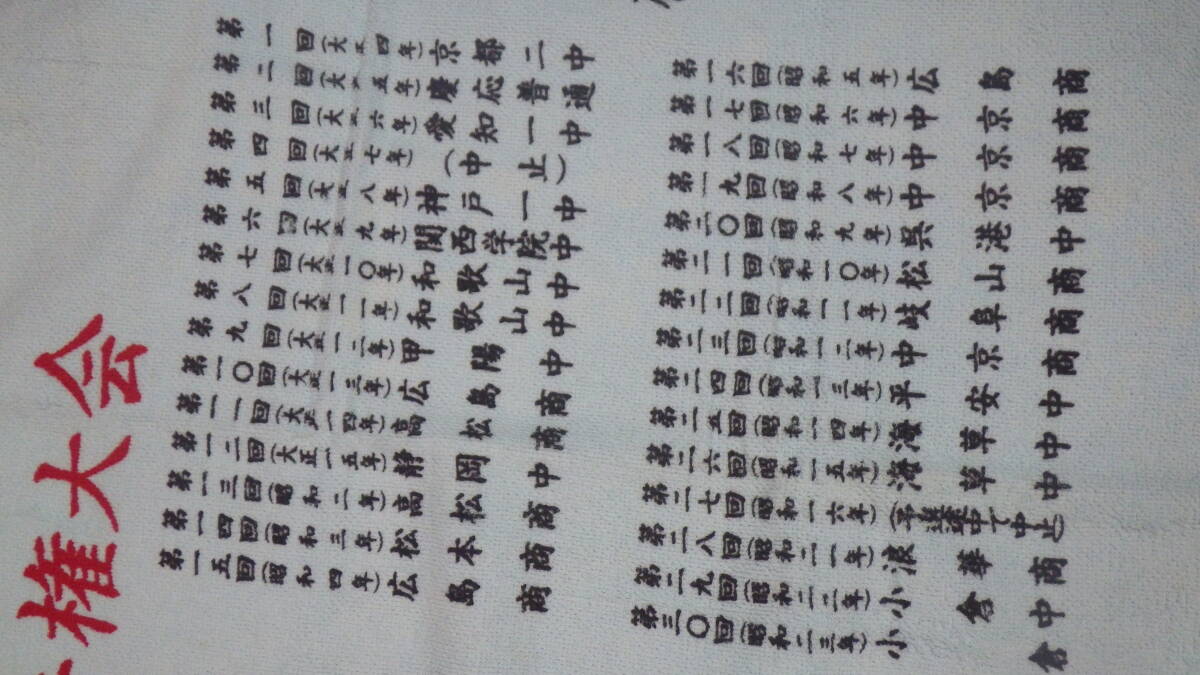 権大会
第一回(大正四年)京都二中
第二回(大正五年)慶応普通
第三回(大正六年)愛知一中
第四回(大正七年)(中止)
第五回(大正八年)神戸一中
第六回(大正九年)関西学院中
第七回(大正一〇年)和歌山中
第八回(大正一一年)和歌山中
第九回(大正一二年)甲陽中
第一〇回(大正一三年)広島商
第一一回(大正一四年)高松商
第一二回(大正一五年)静岡中
第一三回(昭和二年)高松商
第一四回(昭和三年)松本商
第一五回(昭和四年)広島商
第一六回(昭和五年)広島商
第一七回(昭和六年)中京商
第一八回(昭和七年)中京商
第一九回(昭和八年)中京商
第二〇回(昭和九年)呉港中
第二一回(昭和一〇年)松山商
第二二回(昭和一一年)岐阜商
第二三回(昭和一二年)中京商
第二四回(昭和一三年)平安中
第二五回(昭和一四年)海草中
第二六回(昭和一五年)海草中
第二七回(昭和一六年)(予選途中で中止)
第二八回(昭和二一年)浪華商
第二九回(昭和二二年)小倉中
第三〇回(昭和二三年)小倉